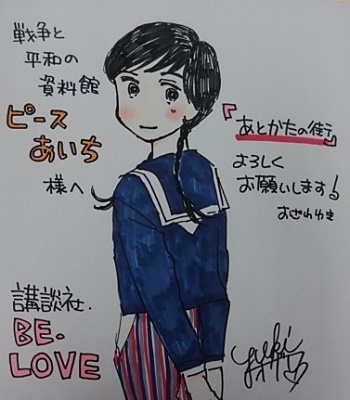 戦争と
平和の
資料館
ピース
あいち
様へ
『あとかたの街』
よろしく
お願いします!
おざわゆき
講談社.
BE・
LOVE
yuki